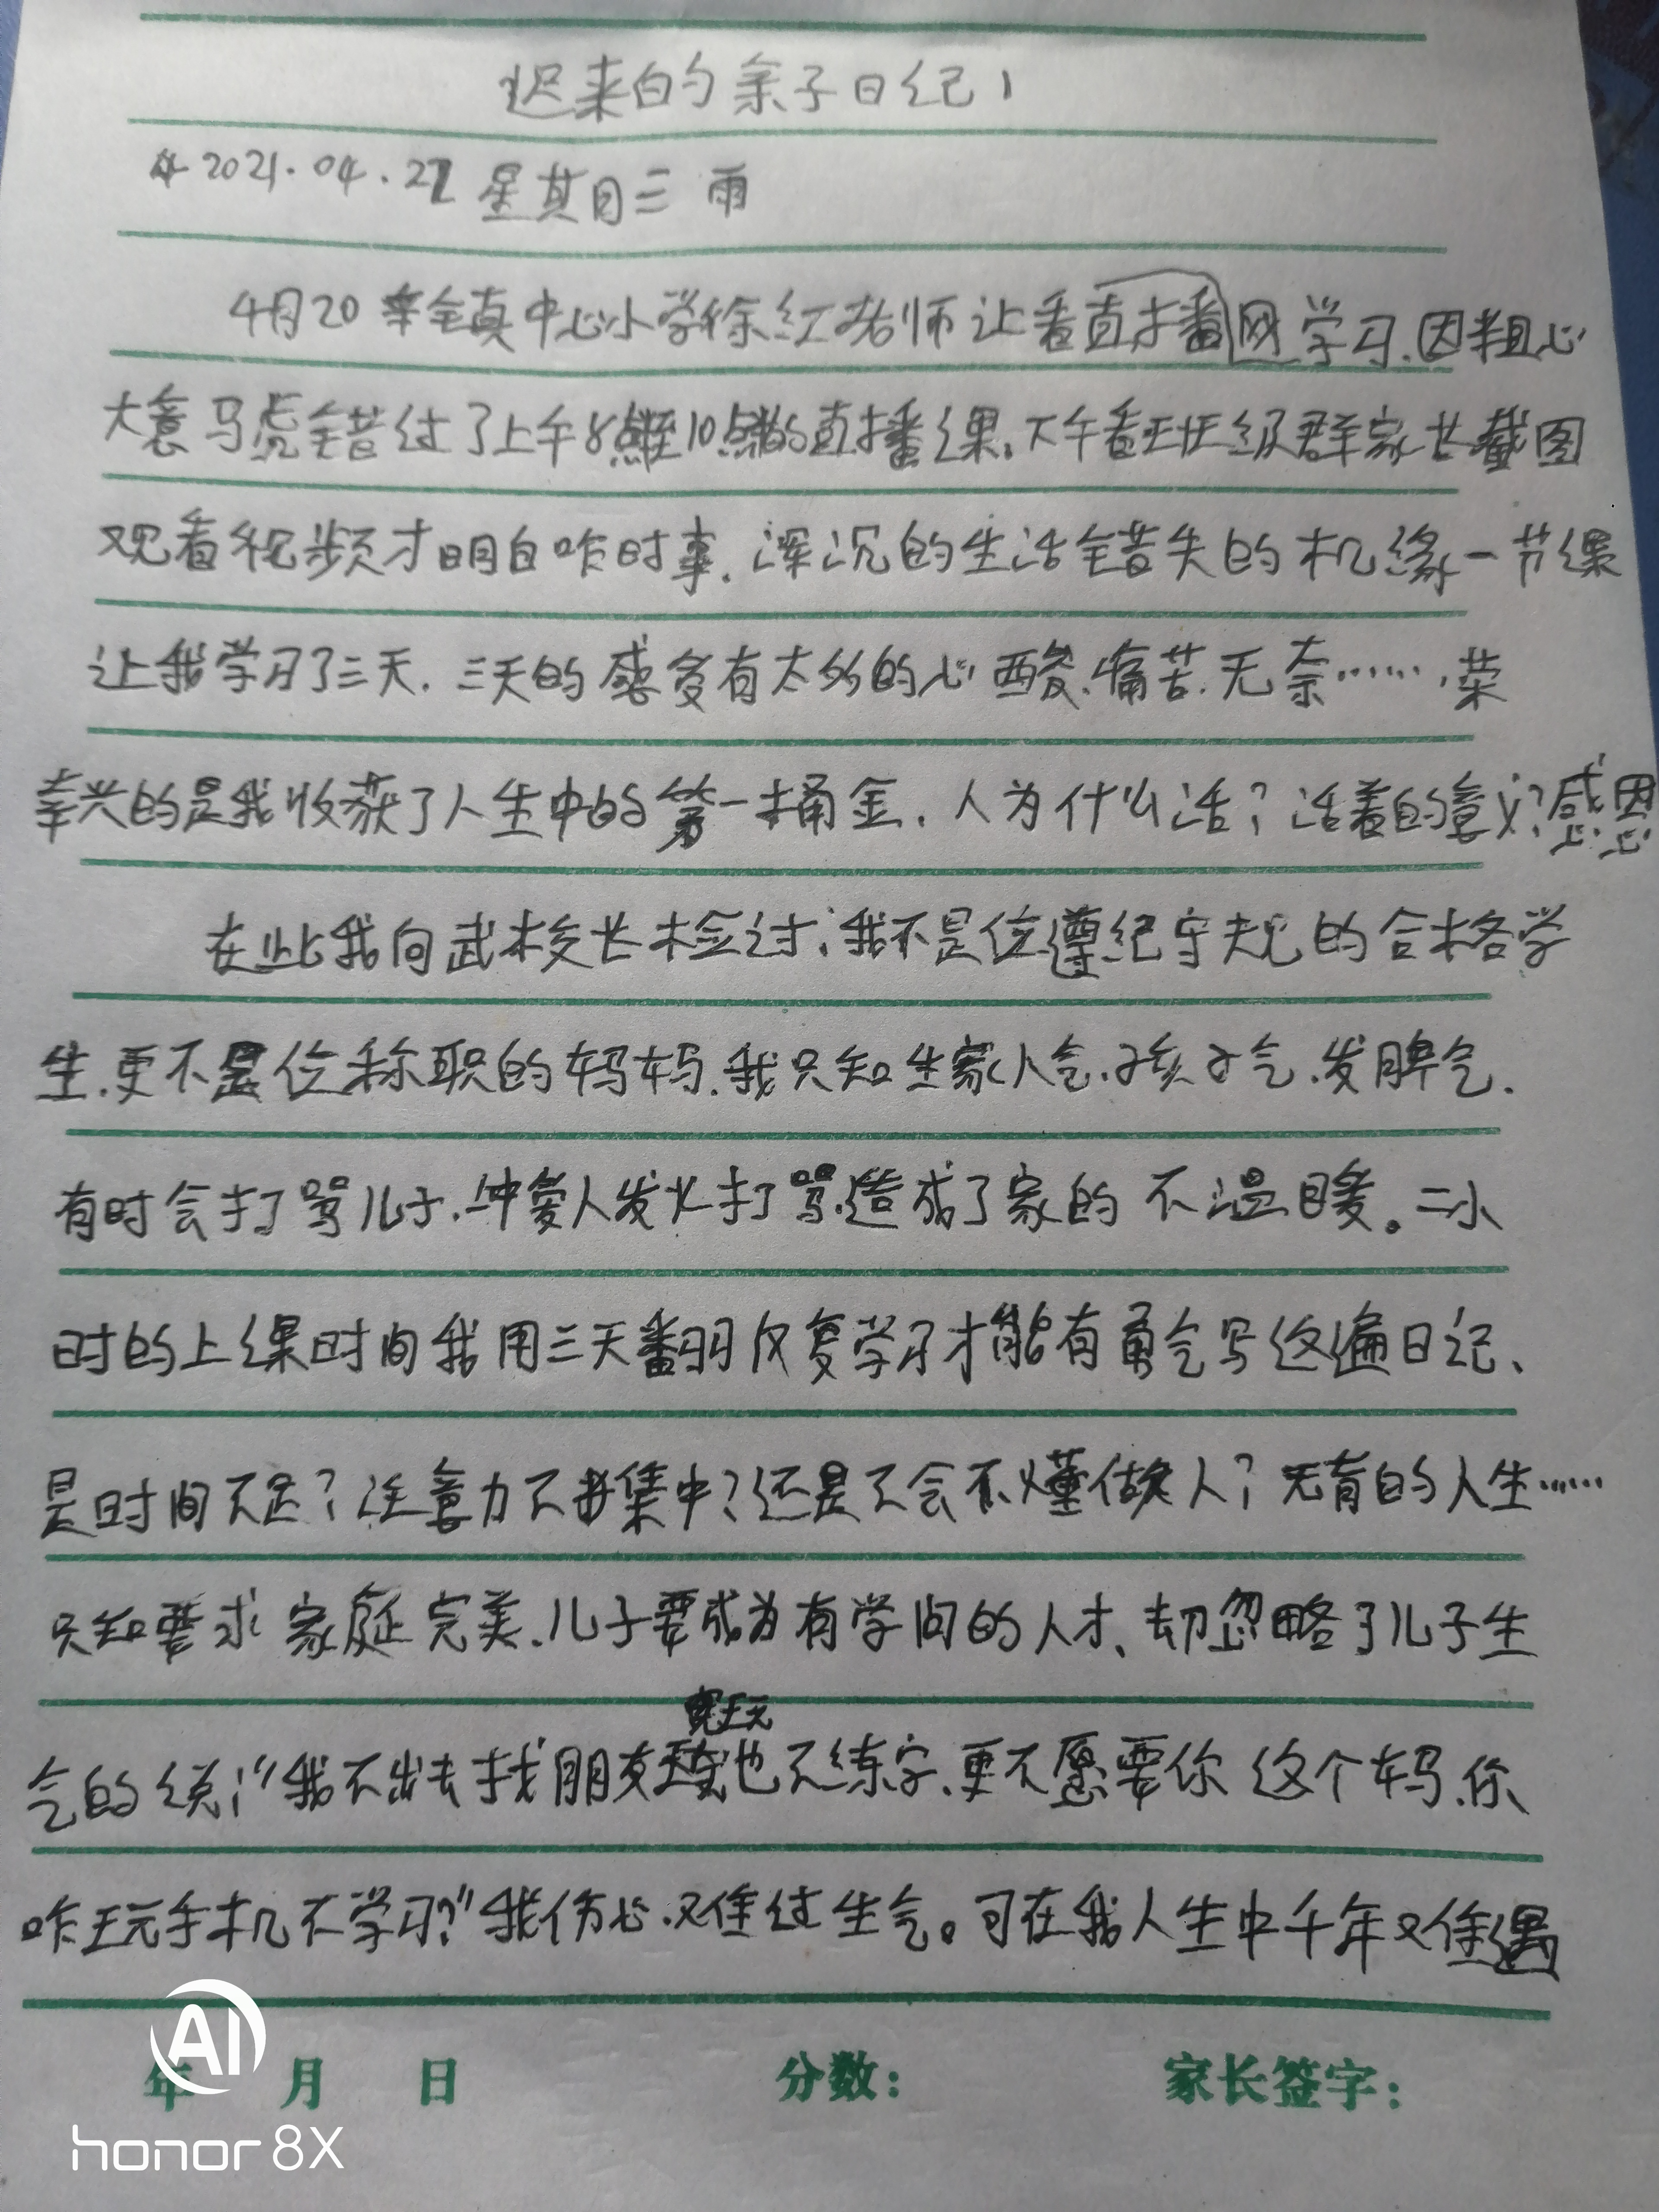 迟来的亲子日记1
2021.04.22 星其月三 雨
4月20 辛全真中心小学徐红老师让看直播网学习.因粗心
大意马虎错过了上午8点至10点的直播课.下午看班级群家长截图
观看视频才明白咋时事.浑沉的生活错失的机缘一节课
让我学习了三天.三天的感多有太多的心酸.痛苦.无奈……,荣
幸兴的是我收获了人生中的第一捅金.人为什么活?活着的意义?感恩
在此我向武校长检讨:我不是位遵纪守规的合格学
生.更不是位称职的妈妈.我只知生家人气.孩子气.发脾气.
有时会打骂儿子.冲爱人发火打骂.造成了家的不温暖。二小
时的上课时间我用三天翻羽反复学习才能有勇气写这遍日记、
是时间不足?注意力不集中?还是不会不懂做人?无有的人生……
只知要求家庭完美.儿子要成为有学问的人才、却忽略了儿子生
气的说:"我不出去找朋友玩也不练字.更不愿要你这个妈.你
咋玩手机不学习?"我伤心.又难过生气。可在我人生中千年又难遇
年 月 日 分数: 家长签字:
AI
honor 8X